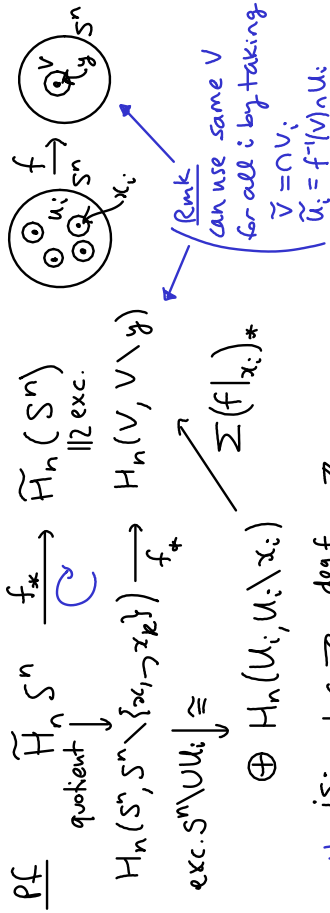 Pf
H̃ₙ Sⁿ
f_*
H̃ₙ(Sⁿ)
quotient
|||≀ exc.
Hₙ(Sⁿ, Sⁿ \ {x₁, –, x_k})
f_*
Hₙ(V, V \ y)
exc. Sⁿ \ ∪Uᵢ
≅
⊕ Hₙ(Uᵢ, Uᵢ \ xᵢ)
Σ(f|xᵢ)_*
f
uᵢ
Sⁿ
xᵢ
V
y
Sⁿ
Rmk
can use same V
for all i by taking
Ṽ = ∩Vᵢ
ũᵢ = f⁻¹(V) ∩ Uᵢ